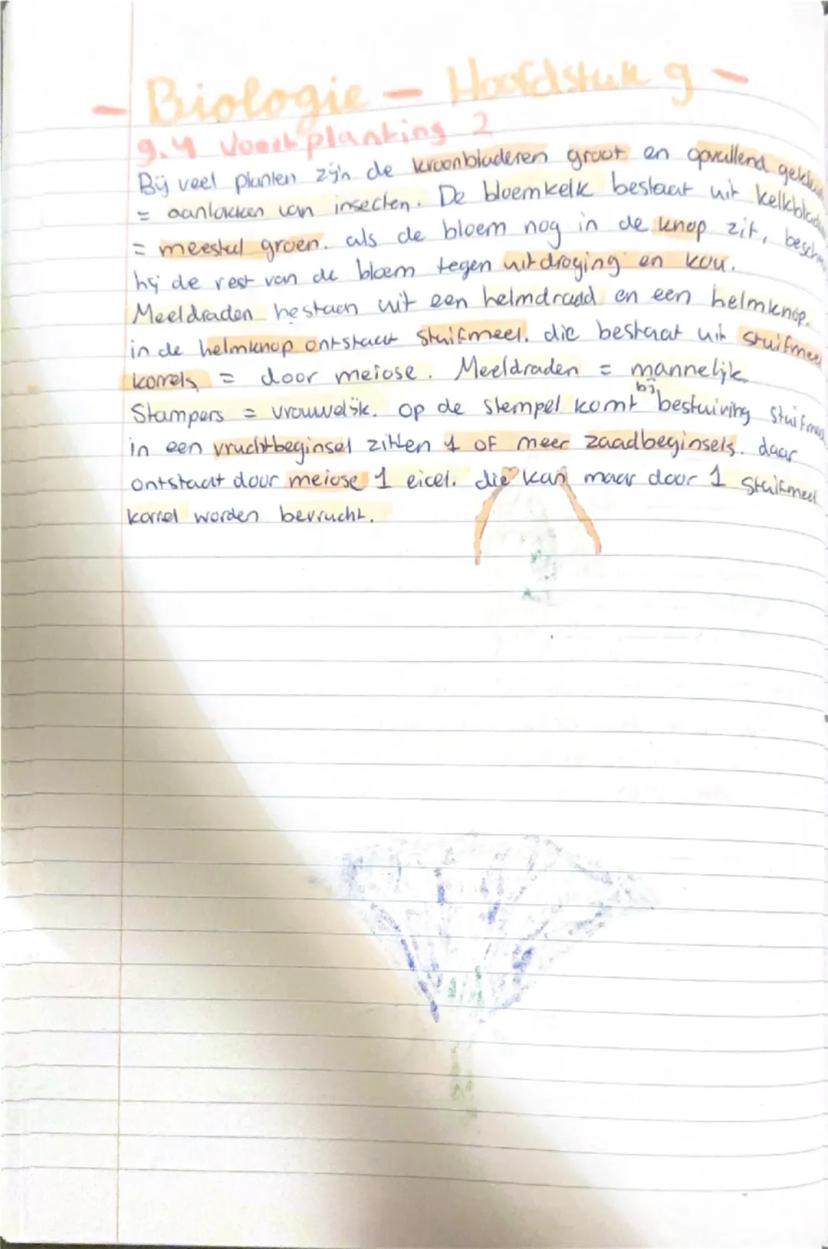 - Biologie - Hoofdstuk 9 -
9.4 Voortplanting 2
Bij veel planten zijn de kroonbladeren groot en opvallend
= aanlokken van insecten. De bloemkelk bestaat uit
= meestal groen. als de bloem nog in de knop zit,
hij de rest van de bloem tegen uitdroging en kou.
Meeldraden bestaan uit een helmdraad en een helmknop.
in de helmknop ontstaat stuifmeel. die bestaat uit stuifmeel
korrels = door meiose. Meeldraden = mannelijk
Stampers = vrouwelijk. op de stempel komt bij bestuiving
in een vruchtbeginsel zitten 1 of meer zaadbeginsels. daar
ontstaat door meiose 1 eicel. die kan maar door 1 stuifmeel
korrel worden bevrucht.